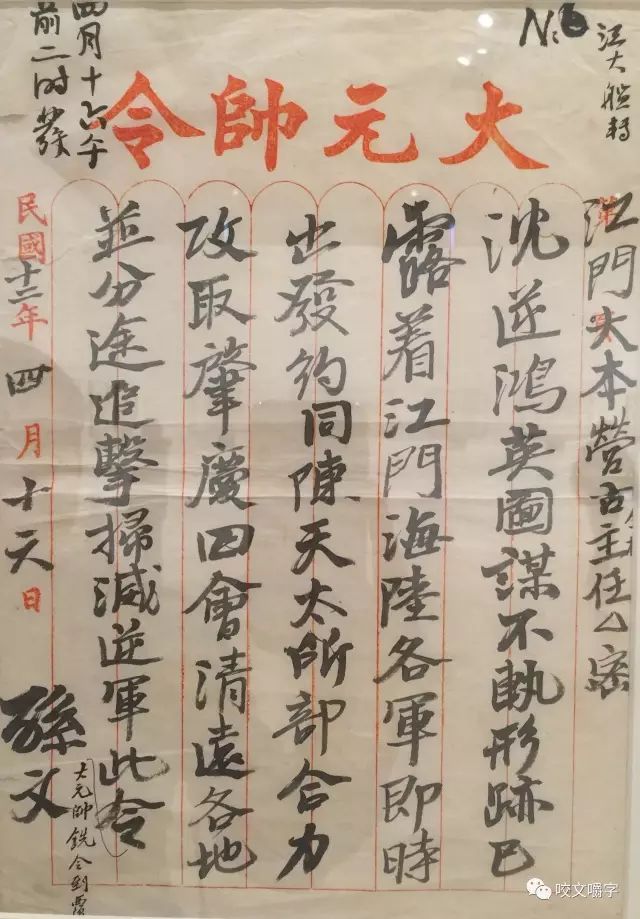 江大艦轉
大元帥令
江門大本營古主任密
沈逆鴻英圖謀不軌形跡已
露着江門海陸各軍即時
出發約同陳天太所部合力
攻取肇慶四會清遠各地
並分途追擊掃滅逆軍此令
孫文
大元帥銑令到
民國十二年四月十六日
四月十六午
前二时發
咬文嚼字